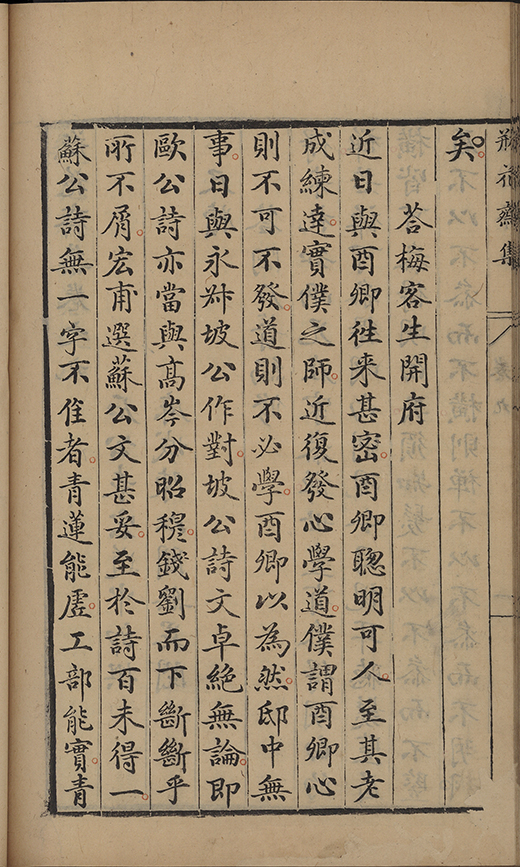 瓶花齋集
卷九
矣
荅梅客生開府
近日與酉卿徃来甚密酉卿聰明可人至其老
成練達實僕之師近復發心學道僕謂酉卿心
則不可不發道則不必學酉卿以為然邸中無
事日與永叔坡公作對坡公詩文卓絶無論即
歐公詩亦當與髙岑分昭穆錢劉而下斷斷乎
所不屑宏甫選蘇公文甚妥至於詩百未得一
蘇公詩無一字不佳者青蓮能虛工部能實青